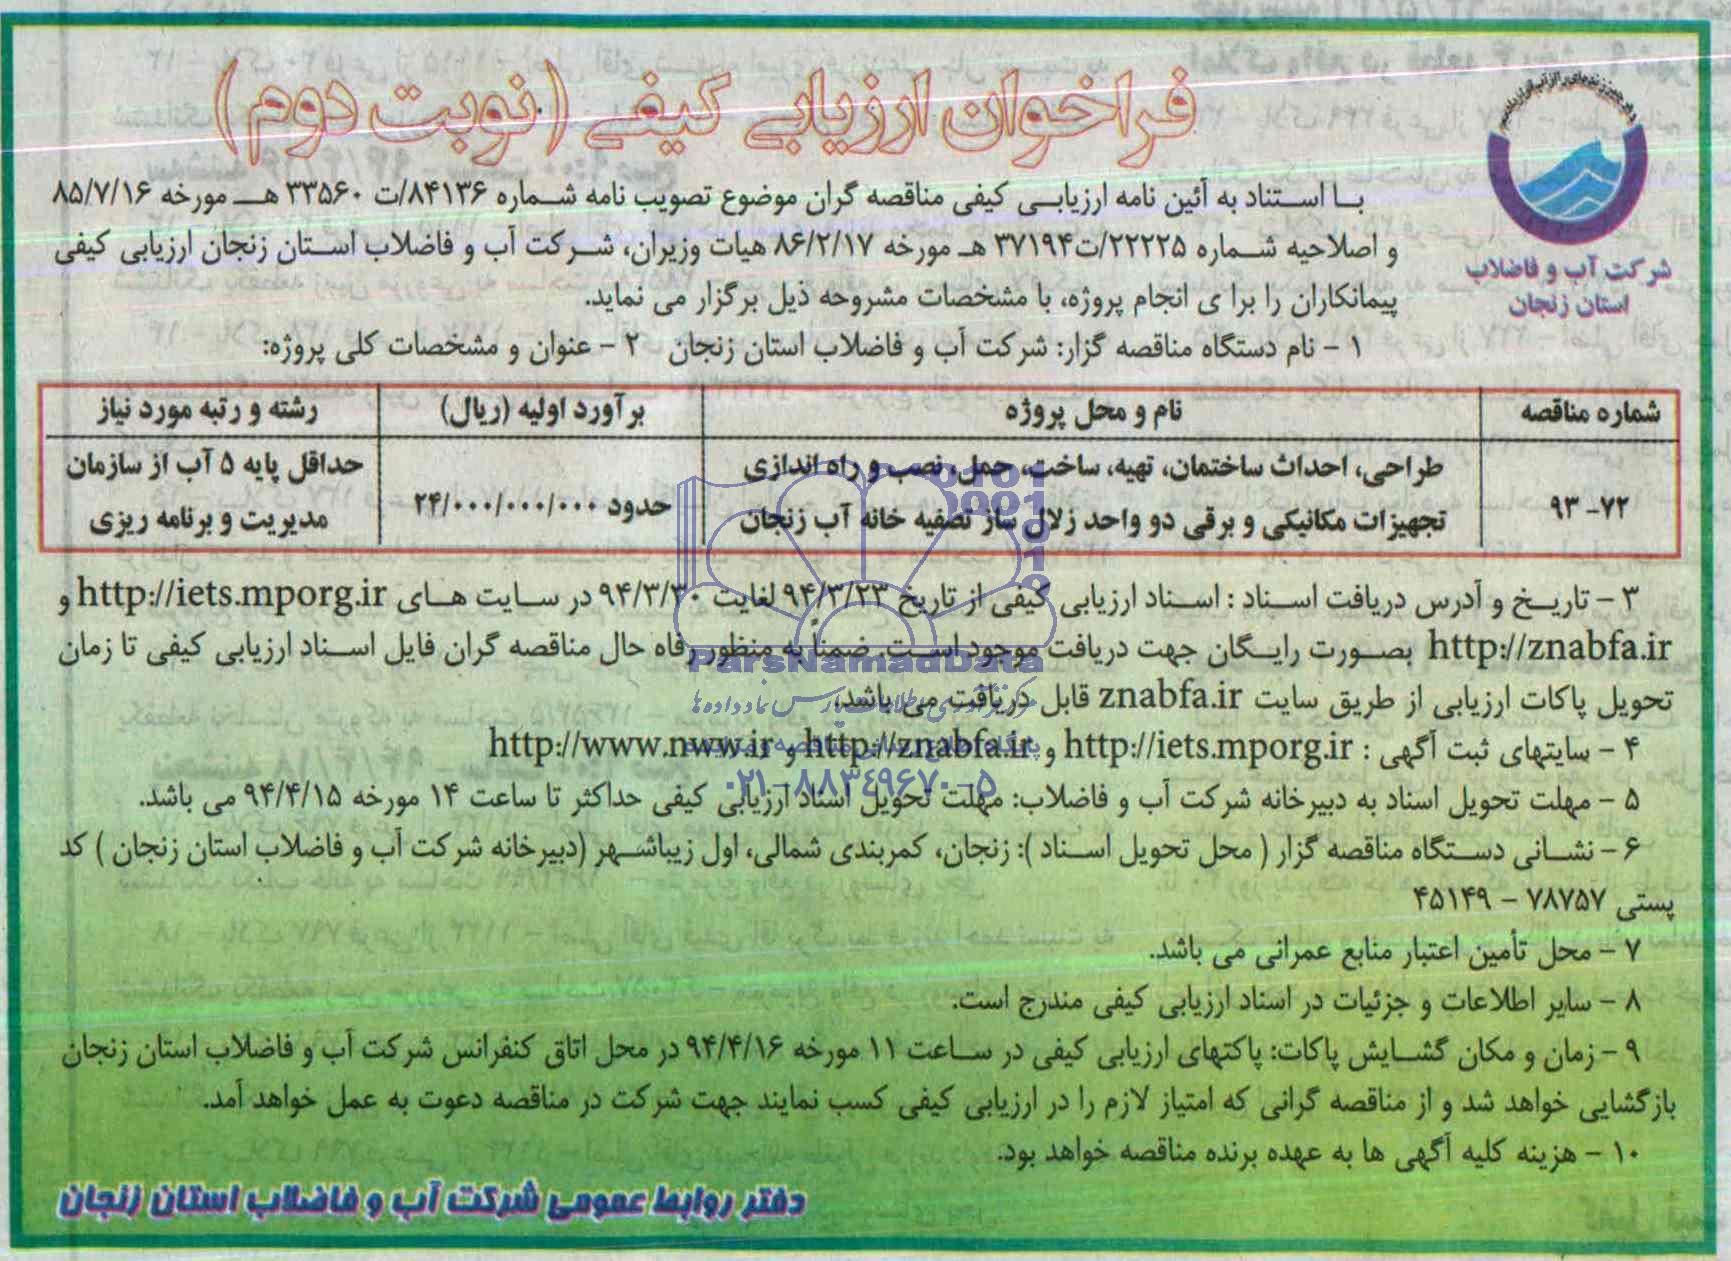 فراخوان ارزیابی کیفی (نوبت دوم)
شرکت آب و فاضلاب
استان زنجان
با استناد به آئین نامه ارزیابی کیفی مناقصه گران موضوع تصویب نامه شماره ۸۴۱۳۶/ت ۳۳۵۶۰ هـ مورخه ۸۵/۷/۱۶
و اصلاحیه شماره ۲۲۲۲۵/ت۳۷۱۹۴ هـ مورخه ۸۶/۲/۱۷ هیات وزیران، شرکت آب و فاضلاب استان زنجان ارزیابی کیفی
پیمانکاران را برا ی انجام پروژه، با مشخصات مشروحه ذیل برگزار می نماید.
۱ – نام دستگاه مناقصه گزار: شرکت آب و فاضلاب استان زنجان ۲ – عنوان و مشخصات کلی پروژه:
شماره مناقصه نام و محل پروژه برآورد اولیه (ریال) رشته و رتبه مورد نیاز
۹۳ -۷۲ طراحی، احداث ساختمان، تهیه، ساخت، حمل، نصب و راه اندازی
تجهیزات مکانیکی و برقی دو واحد زلال ساز تصفیه خانه آب زنجان
حدود ۲۴/۰۰۰/۰۰۰/۰۰۰
حداقل پایه ۵ آب از سازمان
مدیریت و برنامه ریزی
۳ – تاریخ و آدرس دریافت اسناد : اسناد ارزیابی کیفی از تاریخ ۹۴/۳/۲۳ لغایت ۹۴/۳/۳۰ در سایت های http://iets.mporg.ir و
http://znabfa.ir بصورت رایگان جهت دریافت موجود است. ضمناً به منظور رفاه حال مناقصه گران فایل اسناد ارزیابی کیفی تا زمان
تحویل پاکات ارزیابی از طریق سایت znabfa.ir قابل دریافت می باشد.
۴ – سایتهای ثبت آگهی : http://iets.mporg.ir و http://znabfa.ir و http://www.nww.ir
۵ – مهلت تحویل اسناد به دبیرخانه شرکت آب و فاضلاب: مهلت تحویل اسناد ارزیابی کیفی حداکثر تا ساعت ۱۴ مورخه ۹۴/۴/۱۵ می باشد.
۶ – نشانی دستگاه مناقصه گزار ( محل تحویل اسناد ): زنجان، کمربندی شمالی، اول زیباشهر (دبیرخانه شرکت آب و فاضلاب استان زنجان ) کد
پستی ۷۸۷۵۷ – ۴۵۱۴۹
۷ – محل تأمین اعتبار منابع عمرانی می باشد.
۸ – سایر اطلاعات و جزئیات در اسناد ارزیابی کیفی مندرج است.
۹ – زمان و مکان گشایش پاکات: پاکتهای ارزیابی کیفی در ساعت ۱۱ مورخه ۹۴/۴/۱۶ در محل اتاق کنفرانس شرکت آب و فاضلاب استان زنجان
بازگشایی خواهد شد و از مناقصه گرانی که امتیاز لازم را در ارزیابی کیفی کسب نمایند جهت شرکت در مناقصه دعوت به عمل خواهد آمد.
۱۰ – هزینه کلیه آگهی ها به عهده برنده مناقصه خواهد بود.
دفتر روابط عمومی شرکت آب و فاضلاب استان زنجان
ParsNamadData
۰۲۱-۸۸۳۴۹۶۷۰-۵